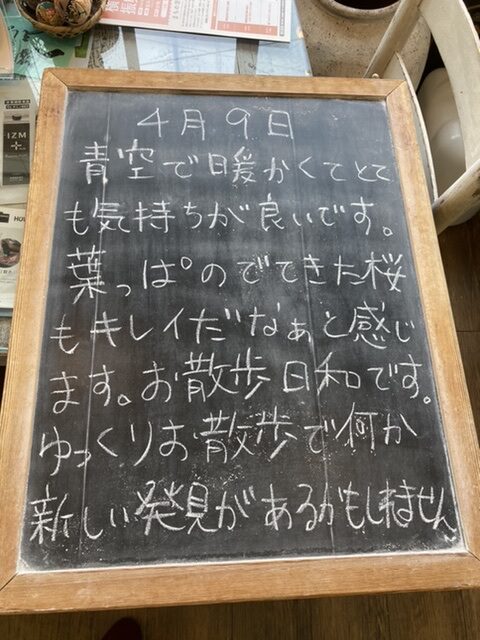 4月9日
青空で暖かくてとて
も気持ちが良いです。
葉っぱのでてきた桜
もキレイだなぁと感じ
ます。お散歩日和です。
ゆっくりお散歩で何か
新しい発見があるかもしれません
IZM